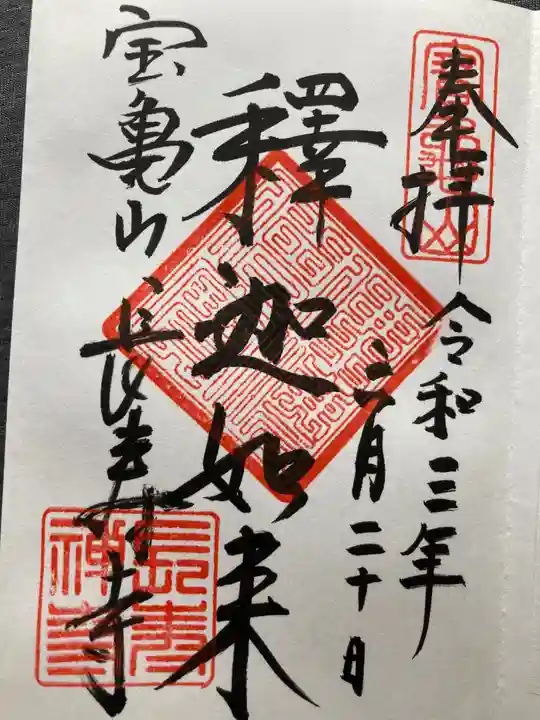 奉拝
令和三年
六月二十日
釋迦如来
宝亀山長寿寺